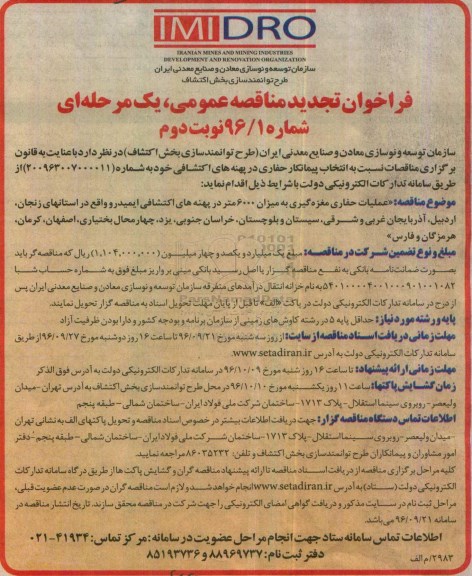 IMIDRO
IRANIAN MINES AND MINING INDUSTRIES
DEVELOPMENT AND RENOVATION ORGANIZATION
سازمان توسعه و نوسازی معادن و صنایع معدنی ایران
طرح توانمندسازی بخش اکتشاف
فراخوان تجدید مناقصه عمومی، یک مرحله‌ای
شماره ۹۶/۱ نوبت دوم
سازمان توسعه و نوسازی معادن و صنایع معدنی ایران (طرح توانمندسازی بخش اکتشاف) در نظر دارد با عنایت به قانون
برگزاری مناقصات نسبت به انتخاب پیمانکار حفاری در پهنه های اکتشافی خود به شماره (۲۰۰۹۶۳۰۰۷۰۰۰۰۱۱) از
طریق سامانه تدارکات الکترونیکی دولت با شرایط ذیل اقدام نماید:
موضوع مناقصه: «عملیات حفاری مغزه گیری به میزان ۶۰۰۰ متر در پهنه های اکتشافی ایمیدرو واقع در استانهای زنجان،
اردبیل، آذربایجان غربی و شرقی، سیستان و بلوچستان، خراسان جنوبی، یزد، چهارمحال بختیاری، اصفهان، کرمان،
هرمزگان و فارس»
مبلغ و نوع تضمین شرکت در مناقصه: مبلغ یک میلیارد و یکصد و چهار میلیون (۱,۱۰۴,۰۰۰,۰۰۰) ریال که مناقصه گر باید
بصورت ضمانت‌نامه بانکی به نفع مناقصه گزار یا اصل رسید بانکی مبنی بر واریز مبلغ فوق به شماره حساب شبا
به نام خزانه انتقال درآمدهای متفرقه سازمان توسعه و نوسازی معادن و صنایع معدنی ایران پس
از درج در سامانه تدارکات الکترونیکی دولت در پاکت «الف» تا قبل از پایان مهلت تحویل اسناد به مناقصه گزار تحویل نمایند.
پایه و رشته مورد نیاز: حداقل پایه ۵ در رشته کاوش‌های زمینی از سازمان برنامه و بودجه کشور و دارا بودن ظرفیت آزاد
مهلت زمانی دریافت اسناد مناقصه از سایت: از روز سه شنبه مورخ ۹۶/۰۹/۲۱ تا ساعت ۱۶ روز دوشنبه مورخ ۹۶/۰۹/۲۷ از طریق
سامانه تدارکات الکترونیکی دولت به آدرس www.setadiran.ir
مهلت زمانی ارائه پیشنهاد: تا ساعت ۱۶ روز شنبه مورخ ۹۶/۱۰/۰۹ در سامانه تدارکات الکترونیکی دولت به آدرس فوق الذکر
زمان گشایش پاکتها: ساعت ۱۱ روز یکشنبه مورخ ۹۶/۱۰/۱۰ در محل طرح توانمندسازی بخش اکتشاف به آدرس تهران - میدان
ولیعصر - روبروی سینما استقلال - پلاک ۱۷۱۳ - ساختمان شرکت ملی فولاد ایران - ساختمان شمالی - طبقه پنجم
اطلاعات تماس دستگاه مناقصه گزار: جهت دریافت اطلاعات بیشتر در خصوص اسناد مناقصه و تحویل پاکتهای الف به نشانی تهران
- میدان ولیعصر - روبروی سینما استقلال - پلاک ۱۷۱۳ - ساختمان شرکت ملی فولاد ایران - ساختمان شمالی - طبقه پنجم - دفتر
امور مشاوران و پیمانکاران طرح توانمندسازی بخش اکتشاف و تلفن: ۸۶۰۳۵۲۳۲ مراجعه نمایید.
کلیه مراحل برگزاری مناقصه از دریافت اسناد مناقصه تا ارائه پیشنهاد مناقصه گران و گشایش پاکت ها از طریق درگاه سامانه تدارکات
الکترونیکی دولت (ستاد) به آدرس www.setadiran.ir انجام خواهد شد و لازم است مناقصه گران در صورت عدم عضویت قبلی،
مراحل ثبت نام در سایت مذکور و دریافت گواهی امضای الکترونیکی را جهت شرکت در مناقصه محقق سازند. تاریخ انتشار مناقصه در
سامانه ۹۶/۰۹/۲۱ می باشد.
اطلاعات تماس سامانه ستاد جهت انجام مراحل عضویت در سامانه: مرکز تماس: ۴۱۹۳۴-۰۲۱
دفتر ثبت نام: ۸۸۹۶۹۷۳۷ و ۸۵۱۹۳۷۳۶
۲۹۸۳/م الف